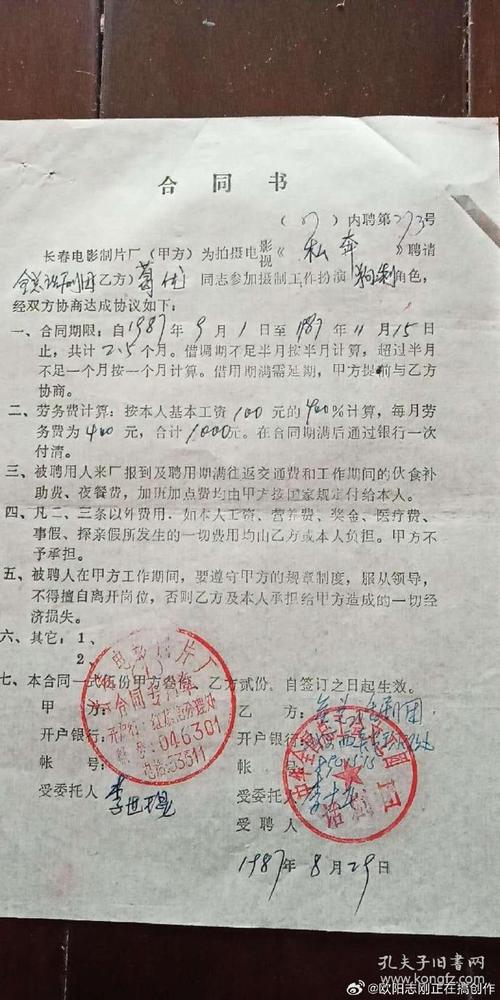 合同书
(87)内聘第273号
长春电影制片厂(甲方)为拍摄电影视《私奔》聘请
全总话剧团(乙方)葛优同志参加摄制工作扮演 角色,
经双方协商达成协议如下:
一、合同期限:自1987年9月1日至1987年11月15日
止,共计2.5个月。借调期不足半月按半月计算,超过半月
不足一个月按一个月计算。借用期满需延期,甲方提前与乙方
协商。
二、劳务费计算:按本人基本工资100元的400%计算,每月劳
务费为400元,合计1000元。在合同期满后通过银行一次
付清。
三、被聘用人来厂报到及聘用期满往返交通费和工作期间的伙食补
助费、夜餐费,加班加点费均由甲方按国家规定付给本人。
四、凡二、三条以外费用,如本人工资、营养费、奖金、医疗费、
事假、探亲假所发生的一切费用均由乙方或本人负担。甲方不
予承担。
五、被聘人在甲方工作期间,要遵守甲方的规章制度,服从领导,
不得擅自离开岗位,否则乙方及本人承担给甲方造成的一切经
济损失。
六、其它:1、
2、
七、本合同一式伍份甲方叁份,乙方贰份,自签订之日起生效。
甲方: 乙方:全总话剧团
开户银行: 开户银行:
帐号: 帐号:
受委托人 受委托人
受聘人
电影制片厂
合同专用章
开户行:
帐号:046301
电话:53311
话剧团
1987年8月29日
孔夫子旧书网
www.kongfz.com
@欧阳志刚正在搞创作